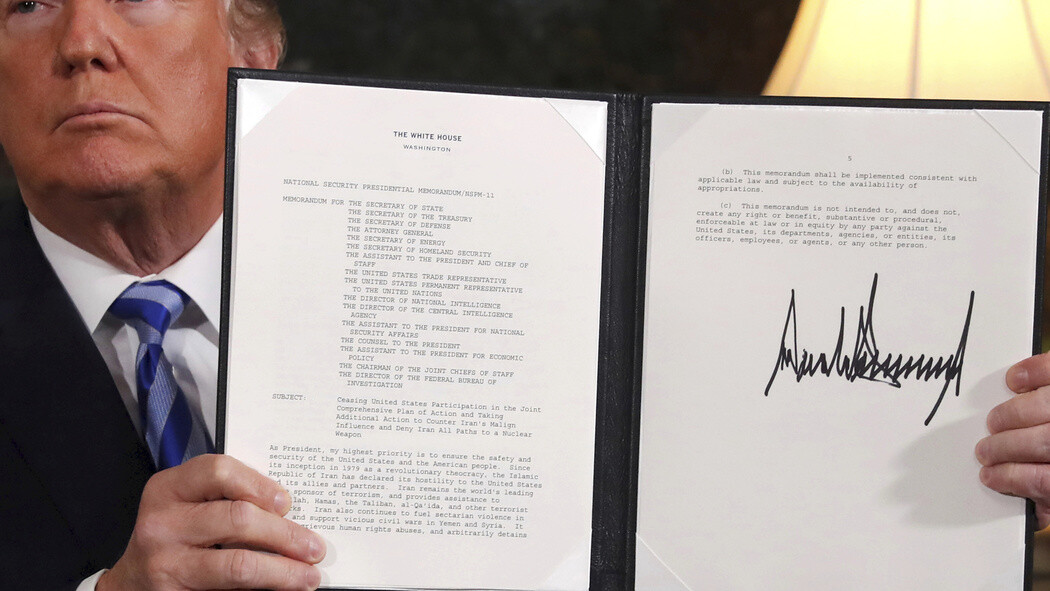 THE WHITE HOUSE
WASHINGTON
NATIONAL SECURITY PRESIDENTIAL MEMORANDUM/NSPM-11
MEMORANDUM FOR THE SECRETARY OF STATE
THE SECRETARY OF THE TREASURY
THE SECRETARY OF DEFENSE
THE ATTORNEY GENERAL
THE SECRETARY OF ENERGY
THE SECRETARY OF HOMELAND SECURITY
THE ASSISTANT TO THE PRESIDENT AND CHIEF OF
STAFF
THE UNITED STATES TRADE REPRESENTATIVE
THE UNITED STATES PERMANENT REPRESENTATIVE
TO THE UNITED NATIONS
THE DIRECTOR OF NATIONAL INTELLIGENCE
THE DIRECTOR OF THE CENTRAL INTELLIGENCE
AGENCY
THE ASSISTANT TO THE PRESIDENT FOR NATIONAL
SECURITY AFFAIRS
THE COUNSEL TO THE PRESIDENT
THE ASSISTANT TO THE PRESIDENT FOR ECONOMIC
POLICY
THE CHAIRMAN OF THE JOINT CHIEFS OF STAFF
THE DIRECTOR OF THE FEDERAL BUREAU OF
INVESTIGATION
SUBJECT: Ceasing United States Participation in the Joint
Comprehensive Plan of Action and Taking
Additional Action to Counter Iran's Malign
Influence and Deny Iran All Paths to a Nuclear
Weapon
As President, my highest priority is to ensure the safety and
security of the United States and the American people. Since
its inception in 1979 as a revolutionary theocracy, the Islamic
Republic of Iran has declared its hostility to the United States
and its allies and partners. Iran remains the world's leading
sponsor of terrorism, and provides assistance to
Hamas, the Taliban, al-Qa'ida, and other terrorist
Iran also continues to fuel sectarian violence in
and support vicious civil wars in Yemen and Syria. It
human rights abuses, and arbitrarily detains
5
(b) This memorandum shall be implemented consistent with
applicable law and subject to the availability of
appropriations.
(c) This memorandum is not intended to, and does not,
create any right or benefit, substantive or procedural,
enforceable at law or in equity by any party against the
United States, its departments, agencies, or entities, its
officers, employees, or agents, or any other person.